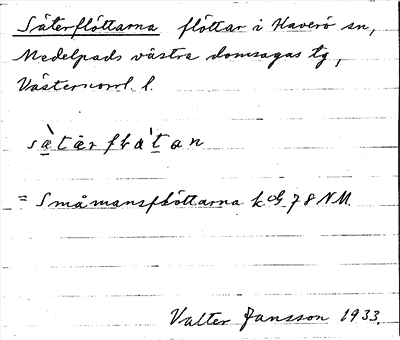 Säterflöttarna flöttar i Haverö sn,
Medelpads västra domsagas tg,
Västernorrl. l.
sä̀tärfḷa'tan
= Småmansflöttarna k 78 NM.
Valter Jansson 1933.